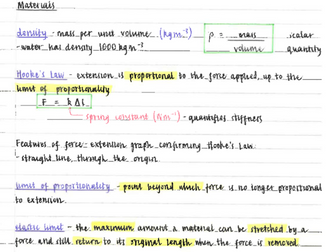 Materials
density - mass per unit volume (kgm⁻³) ρ = mass / volume scalar quantity
- water has density 1000 kgm⁻³
Hooke's Law - extension is proportional to the force applied up to the
limit of proportionality
F = k Δl
spring constant (Nm⁻¹) - quantifies stiffness
Features of force-extension graph confirming Hooke's Law:
- straight line through the origin
limit of proportionality - point beyond which force is no longer proportional
to extension
elastic limit - the maximum amount a material can be stretched by a
force and still return to its original length when the force is removed